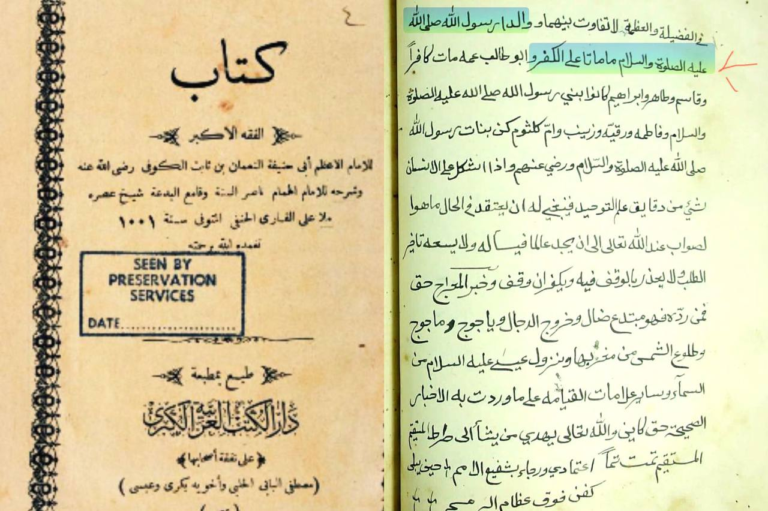 ٤
كتاب
الفقه الاكبر
للامام الاعظم أبى حنيفة النعمان بن ثابت الكوفى رضى الله عنه
وشرحه للامام الهمام ناصر السنة وقامع البدعة شيخ عصره
ملا على القارى الحنفى المتوفى سنة ١٠٠١
تغمده الله برحمته
SEEN BY
PRESERVATION
SERVICES
DATE
طبع بمطبعة
دار الكتب العربية الكبرى
على نفقة أصحابها
( مصطفى البابى الحلبى وأخويه بكرى وعيسى )
في الفضيلة والعظمة لا تفاوت بينهما ووالدا رسول الله صلى الله
عليه الصلوة والسلام ماماتا على الكفر وابو طالب عمه مات كافراً
وقاسم وطاهر وابراهيم كانوا بني رسول الله صلى الله عليه الصلوة
والسلام وفاطمه ورقيه وزينب وام كلثوم كن بنات رسول الله
صلى الله عليه الصلوة والسلام ورضي عنهم واذا اشكل على الانسان
شئ من دقايق علم التوحيد فينبغي له ان يعتقد في الحال ما هو ا
لصواب عند الله تعالى الى ان يجد عالما فيساله ولا يسعه تاخير
الطلب ولا يعذر بالوقف فيه ويكفر ان وقف وخبر المعراج حق
فمن رده فهو مبتدع ضال وخروج الدجال وياجوج وماجوج
وطلوع الشمس من مغربها ونزول عيسى عليه السلام من
السمآء وساير علامات القيامه على ما وردت به الاخبار
الصحيحة حق كاين والله تعالى يهدي من يشآ الى صراط
المستقيم تمت تماً اعتمادي ورجاء بشفيع الامم حين يبلى
كفن فوق عظام